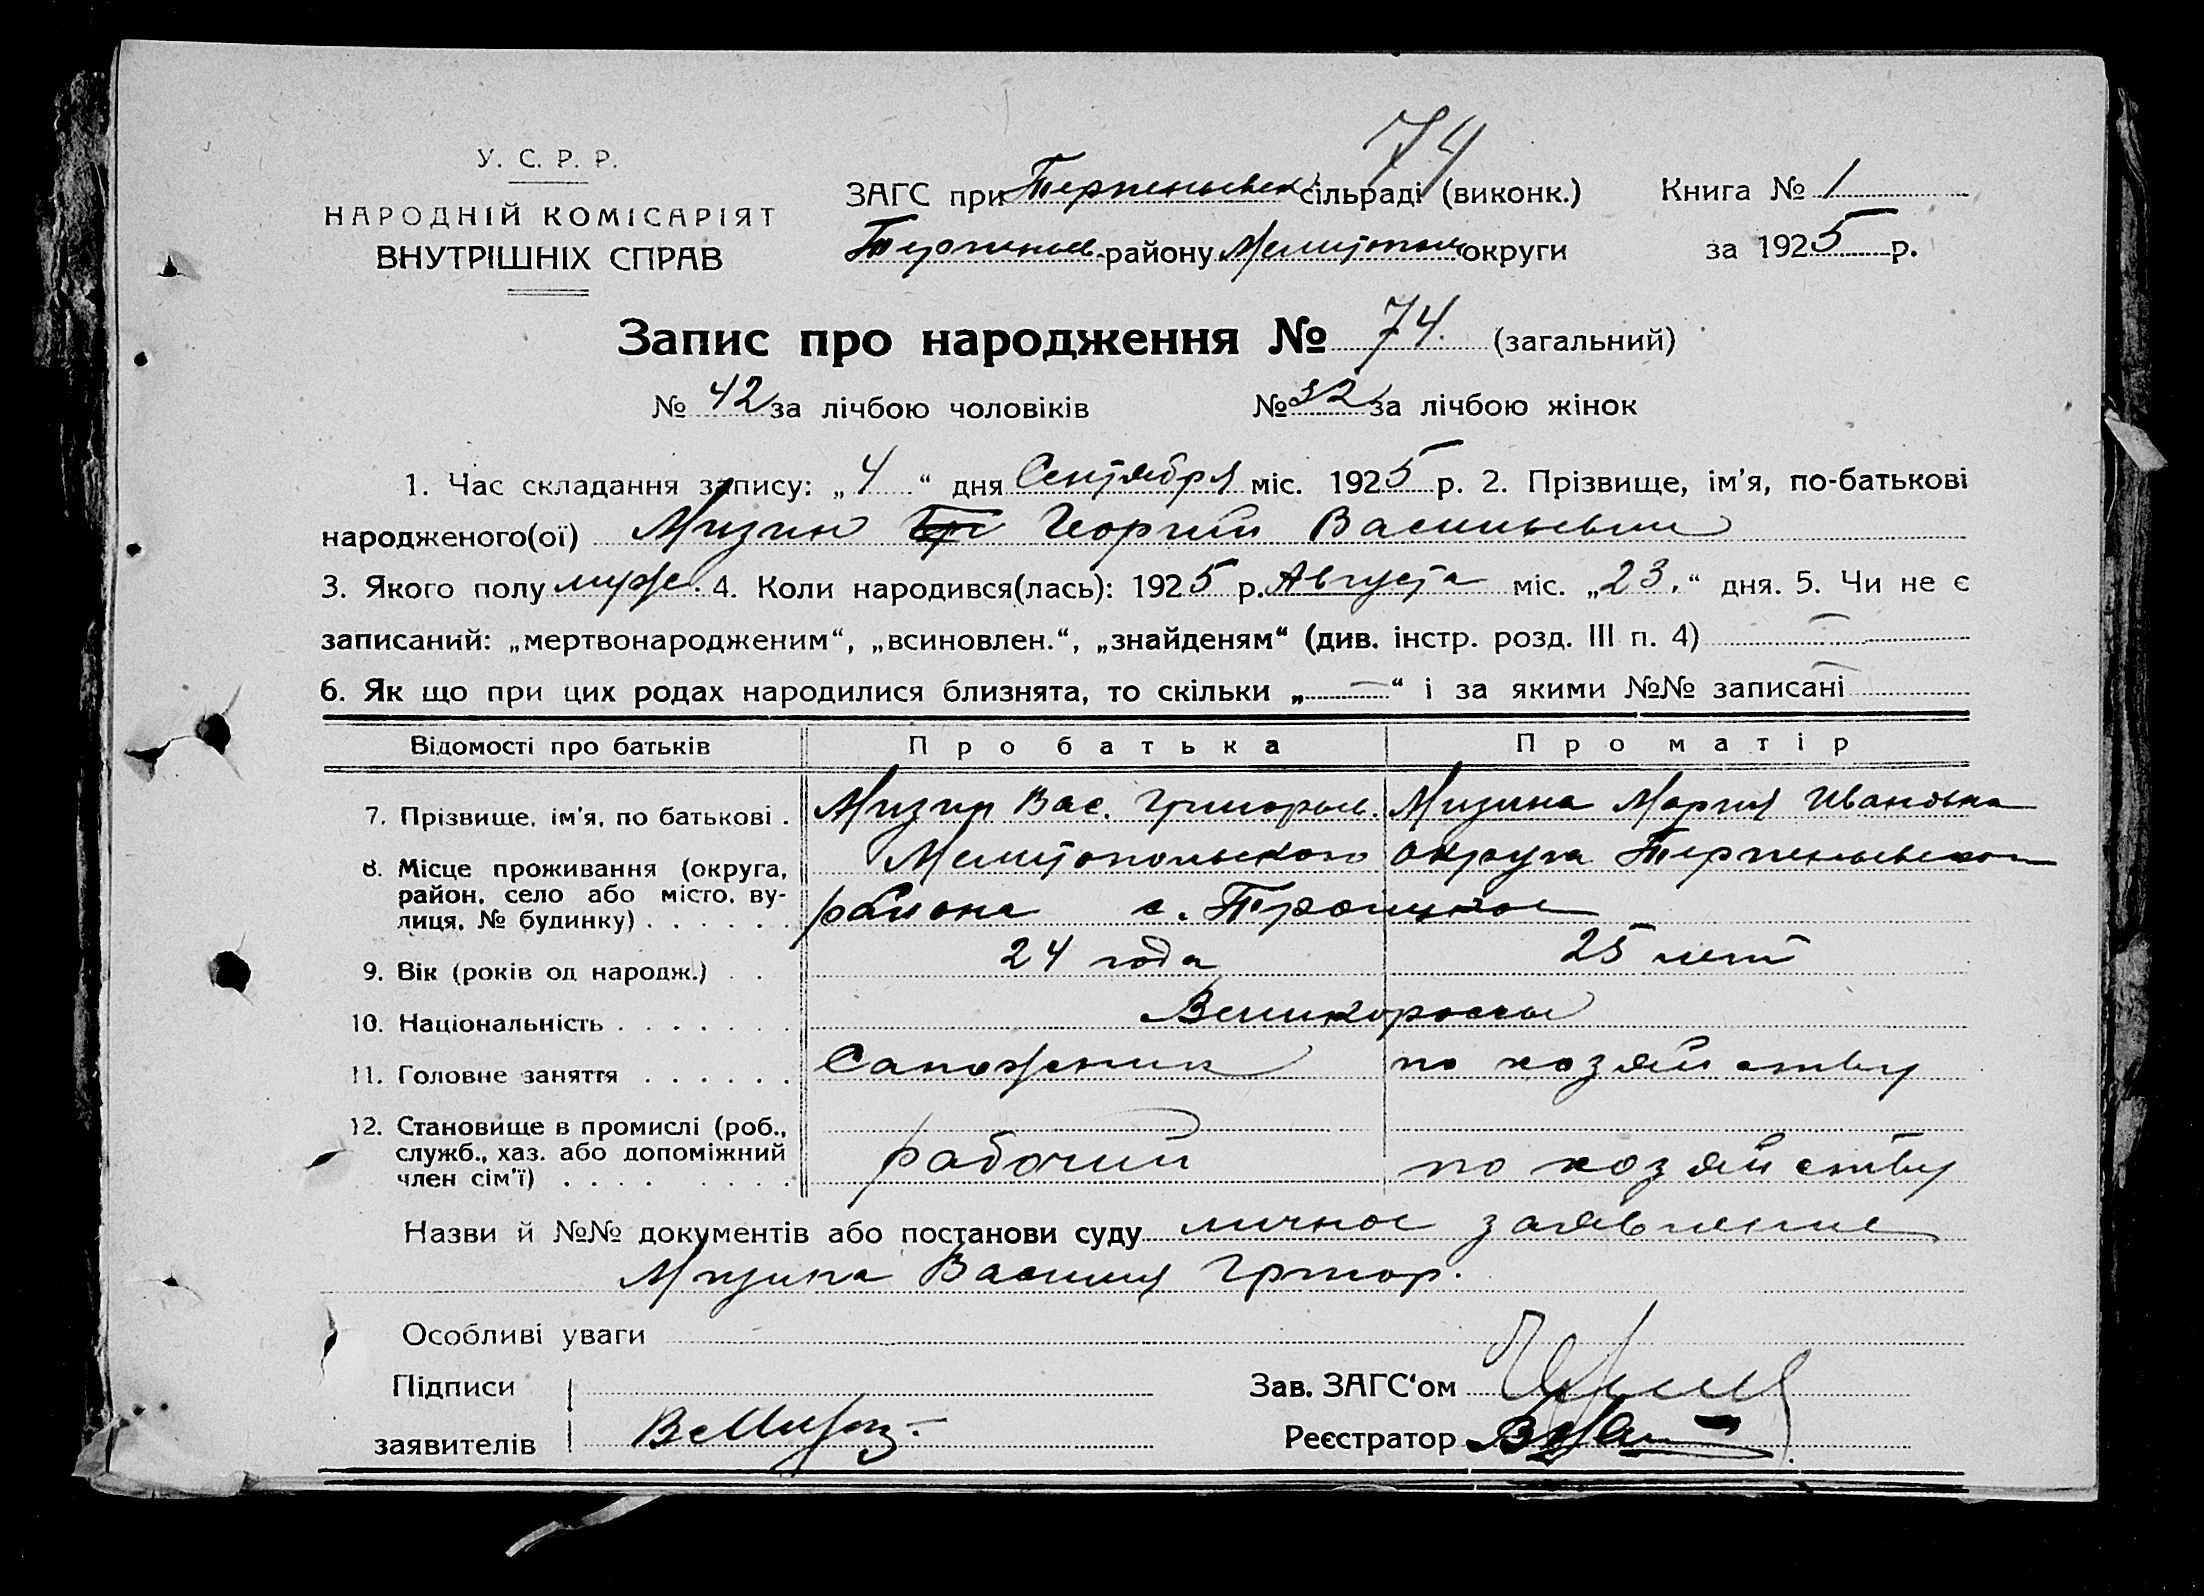 74
У. С. Р. Р.
НАРОДНІЙ КОМІСАРІЯТ
ВНУТРІШНІХ СПРАВ
ЗАГС при Терпеньевск сільраді (виконк.)
Терпеньев. району Мелитополь округи
Книга № 1
за 1925 р.
Запис про народження № 74. (загальний)
№ 42 за лічбою чоловіків № 32 за лічбою жінок
1. Час складання запису: „4“ дня Сентября міс. 1925 р. 2. Прізвище, ім'я, по-батькові
народженого(ої) Мизин Георгий Васильевич
3. Якого полу муж. 4. Коли народився(лась): 1925 р. Августа міс. „23.“ дня. 5. Чи не є
записаний: „мертвонародженим“, „всиновлен.“, „знайденям“ (див. інстр. розд. III п. 4) —
6. Як що при цих родах народилися близнята, то скільки „—“ і за якими №№ записані —
Відомості про батьків Про батька Про матір
7. Прізвище, ім'я, по батькові . Мизин Вас. Григорьев. Мизина Мария Ивановна
8. Місце проживання (округа, Мелитопольского округа Терпеньевского
район, село або місто, ву-
лиця, № будинку) . . . . . . района с. Троицкое
9. Вік (років од народж.) . . 24 года 25 лет
10. Національність . . . . . . . Великороссы
11. Головне заняття . . . . . . Сапожник по хозяйству
12. Становище в промислі (роб.,
служб., хаз. або допоміжний рабочий по хозяйству
член сім'ї) . . . . . . . .
Назви й №№ документів або постанови суду личное заявление
Мизина Василия Григор.
Особливі уваги
Підписи
заявителів
Зав. ЗАГС'ом
Реєстратор